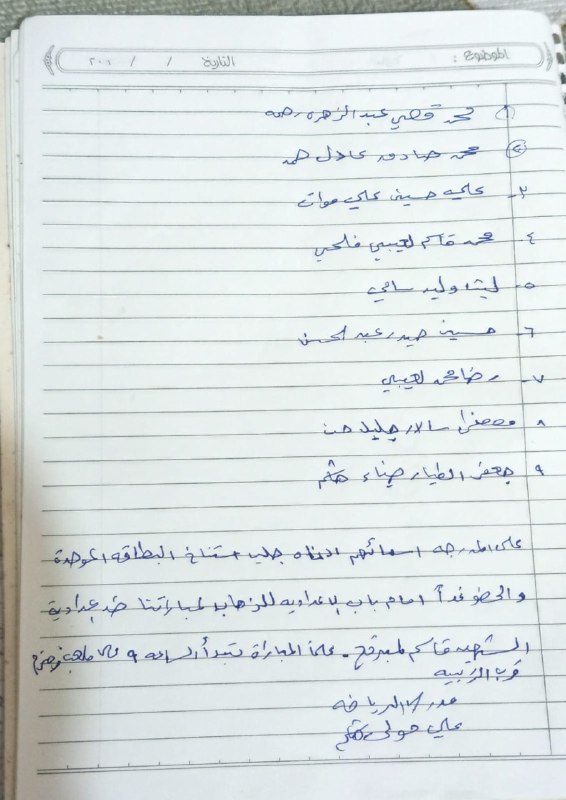 الموضوع : التاريخ / / ٢٠٠
١ محمد قصي عبد الزهره رحمه
٢ محمد صادق عادل حمد
٣- علي حسين علي موات
٤- محمد قاسم لعيبي فلحي
٥- ليث وليد سامي
٦- حسين حيدر عبد الحسن
٧- رضا محمد لعيبي
٨ مصطفى سالار جليل حسن
٩ جعفر الطيار ضياء هاشم
على المدرجه اسمائهم ادناه جلب استنساخ البطاقه الموحدة
والحضور غداً امام باب الاعداديه للذهاب لمباراتنا ضد اعدادية
الشهيد قاسم المبرقع . علماً المباراة تبدأ الساعه ٩ على ملعب
قرب التربيه
مدرس الرياضه
علي هاشم